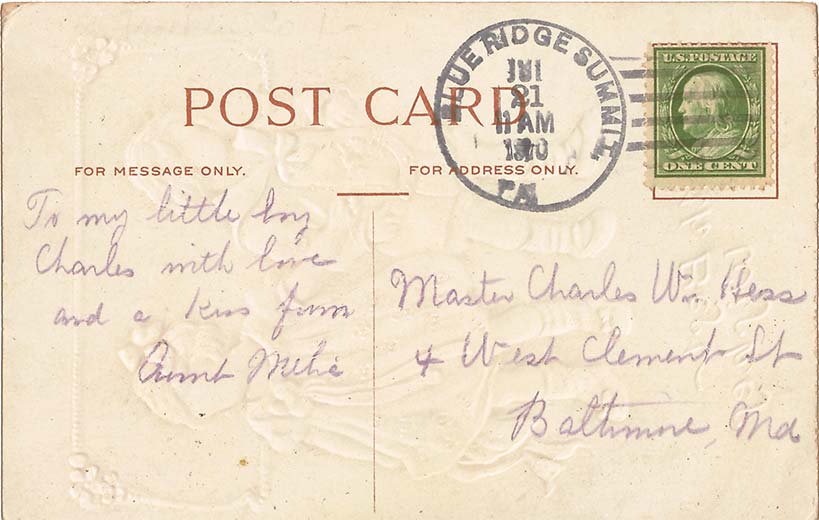 POST CARD
BLUE RIDGE SUMMIT
JUL
21
11 AM
1910
PA
U.S. POSTAGE
ONE CENT
FOR MESSAGE ONLY.
FOR ADDRESS ONLY.
To my little boy
Charles with love
and a kiss from
Aunt
Master Charles W. Hess
4 West Clement St
Baltimore, Md